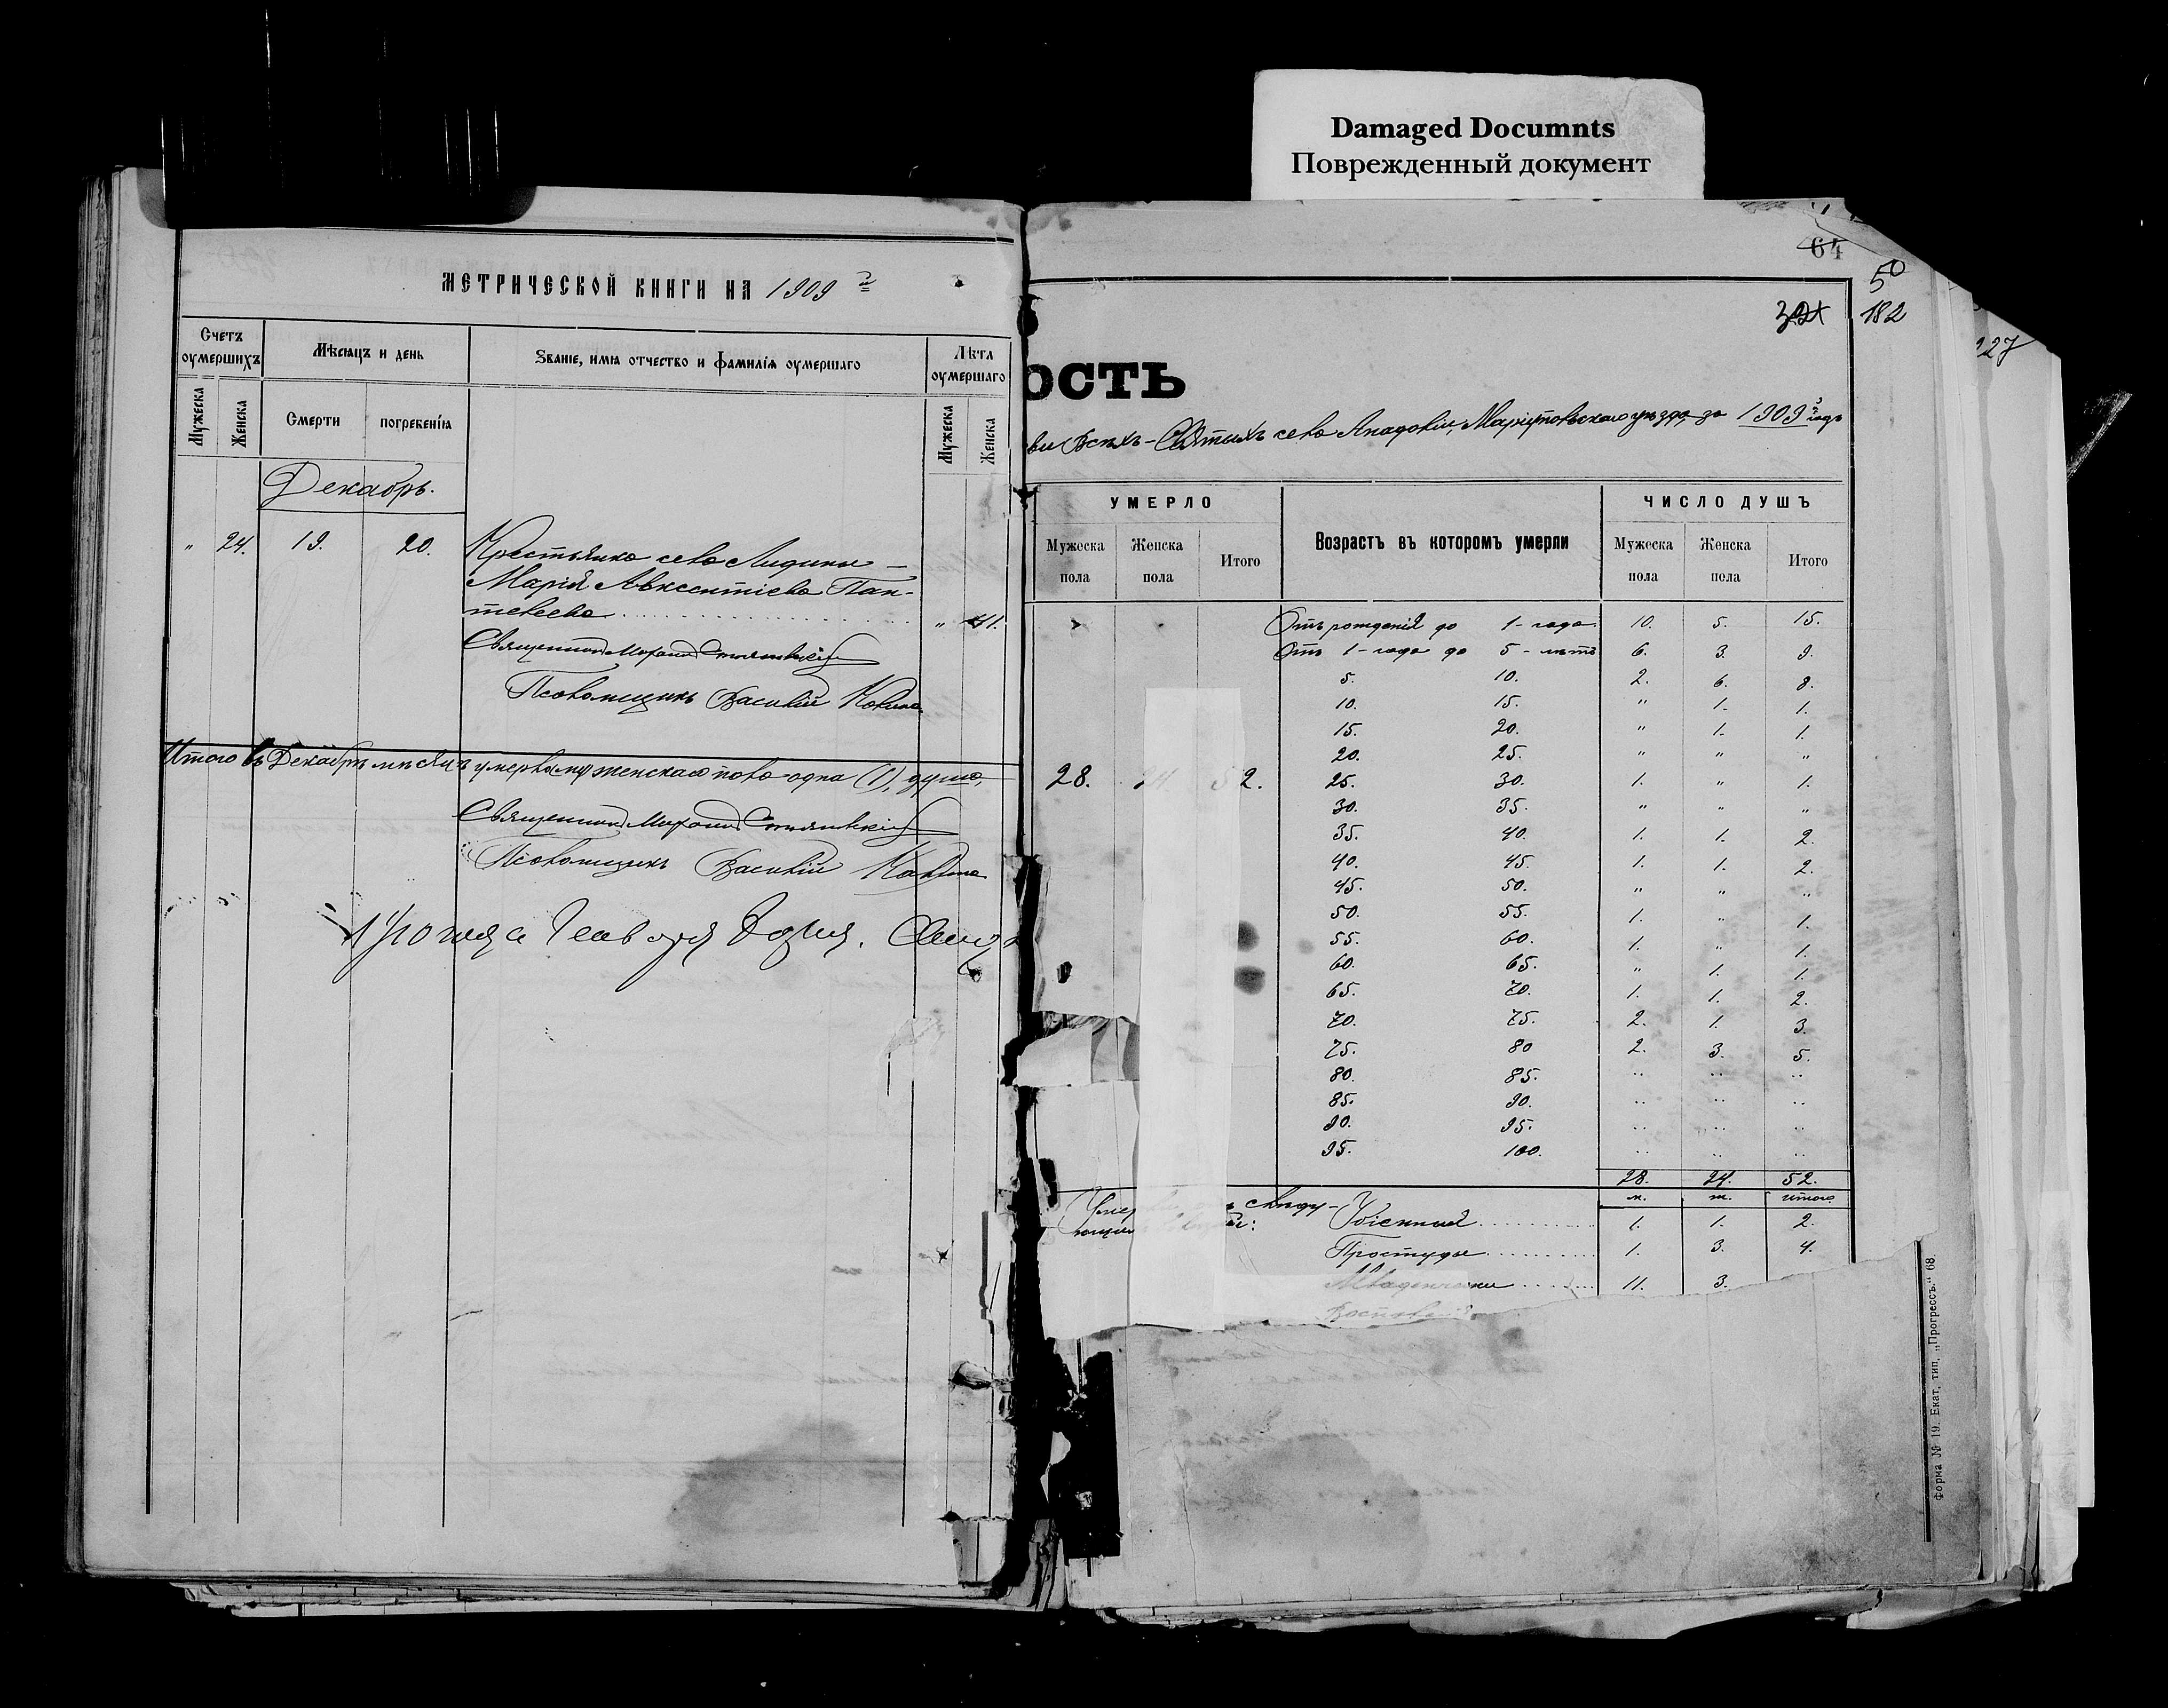 Damaged Documnts
Поврежденный документ
МЕТРИЧЕСКОЙ КНИГИ НА 1909 г
Счетъ оумершихъ
Мѣсяцъ и день
Званіе, имя отчество и фамилія оумершаго
Лѣта оумершаго
Мужеска
Женска
Смерти
погребенія
Мужеска
Женска
Декабрь.
" 24. 19. 20. Крестьянка села
Марія Авксентіева Пан-
телеева " 41.
Священникъ Михаилъ
Псаломщикъ Василій
Итого въ Декабрѣ мѣсяцѣ умерло женскаго пола одна (1), душа,
Священникъ Михаилъ
Псаломщикъ Василій
64
50
182
227
ость
ви Всѣхъ-Святыхъ села Анадоліи, Маріупольскаго уѣзда, за 1909 годъ
УМЕРЛО
Возрастъ въ которомъ умерли
ЧИСЛО ДУШЪ
Мужеска пола
Женска пола
Итого
Мужеска пола
Женска пола
Итого
Отъ рожденія до 1-года 10. 5. 15.
Отъ 1-года до 5-лѣтъ 6. 3. 9.
5. 10. 2. 6. 8.
10. 15. " 1. 1.
15. 20. " 1. 1.
20. 25. " " "
28. 24. 52. 25. 30. 1. " 1.
30. 35. " " "
35. 40. 1. 1. 2.
40. 45. 1. 1. 2.
45. 50. " " "
50. 55. 1. " 1.
55. 60. 1. " 1.
60. 65. " 1. 1.
65. 70. 1. 1. 2.
70. 75. 2. 1. 3.
75. 80 2. 3. 5.
80. 85. " " "
85. 90. " " "
90. 95. " " "
95. 100. " " "
28. 24. 52.
м. ж. итого
слѣду-
1. 1. 2.
Простуды 1. 3. 4.
Младенческ 11. 3.
Форма № 19. Екат. тип. „Прогрессъ." 68